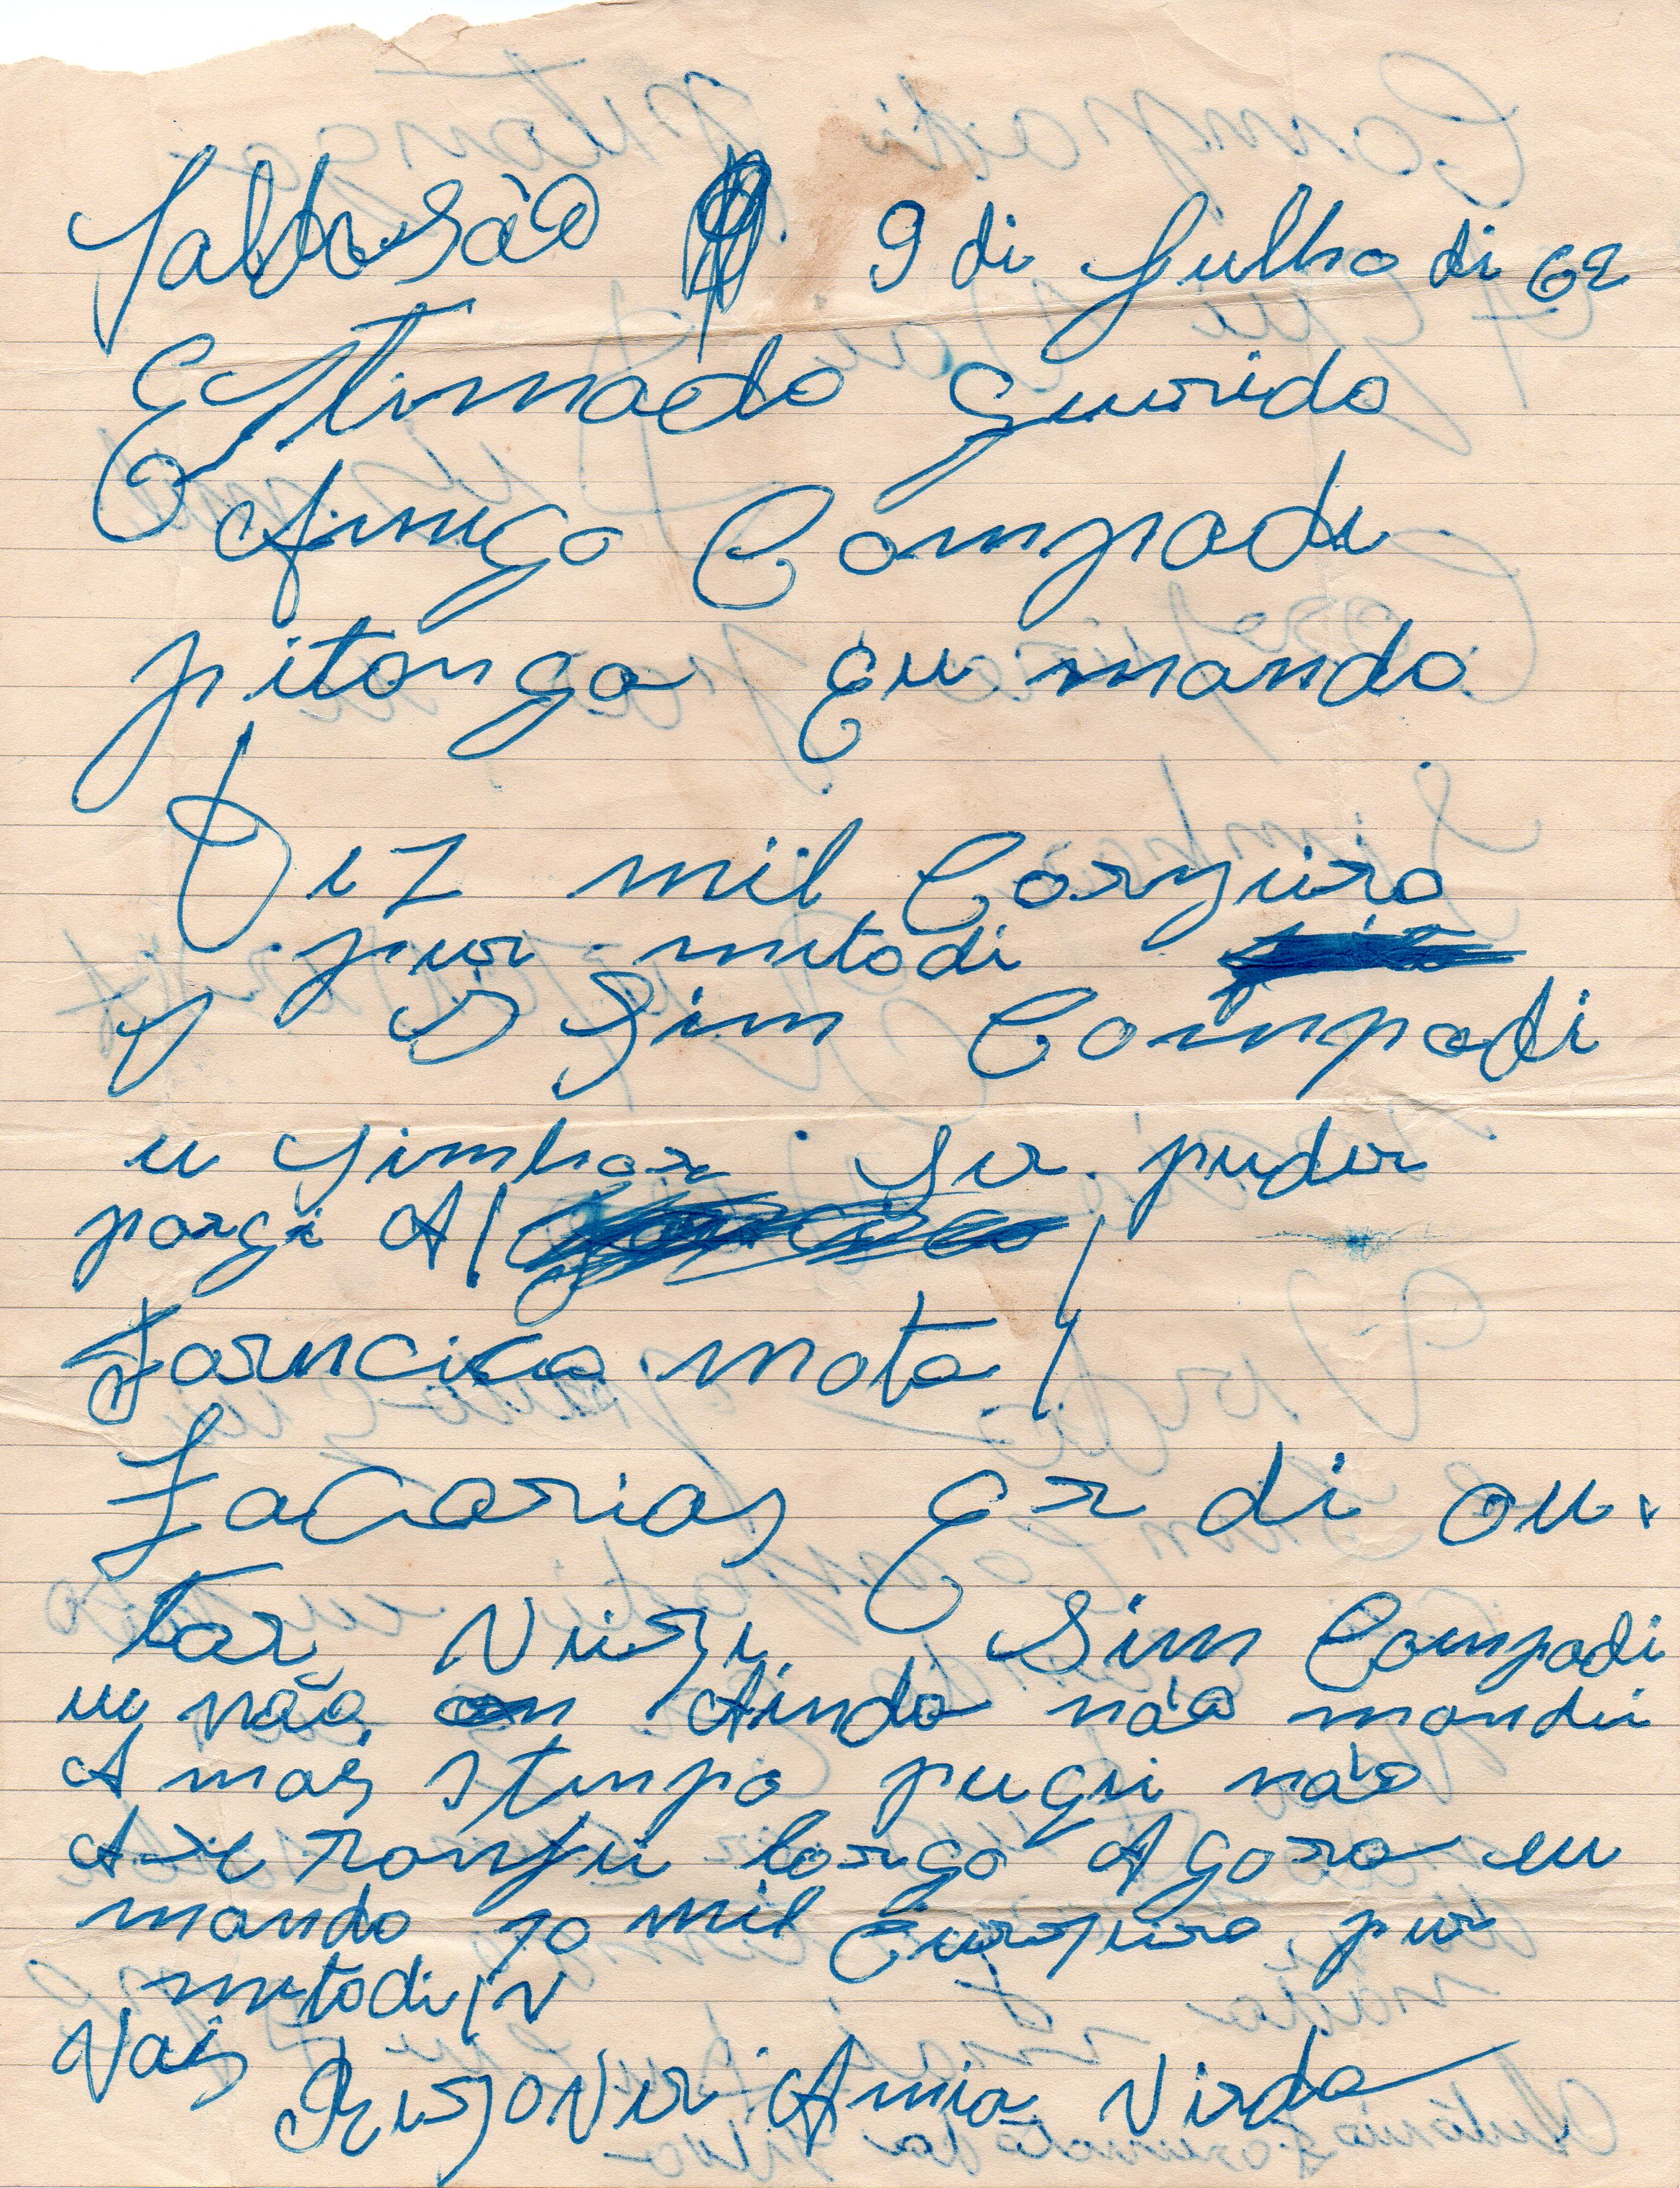 9 di Julho di 62
Estimado Querido
O Amigo Compadi
pitonga Eu mando
Diz mil Corzuiro
pur mitodi
Sim Compadi
u simhor Ser puder
pargi A
Farncica mota
Zacarias Er di ou
tar Viizi Sim Compadi
eu não Ainda não mandii
A mais tempo puqui não
Arranjii largo Agora eu
mando 10 mil Curzuiro pur
mitodi V
Vais Rizover Amia Virda